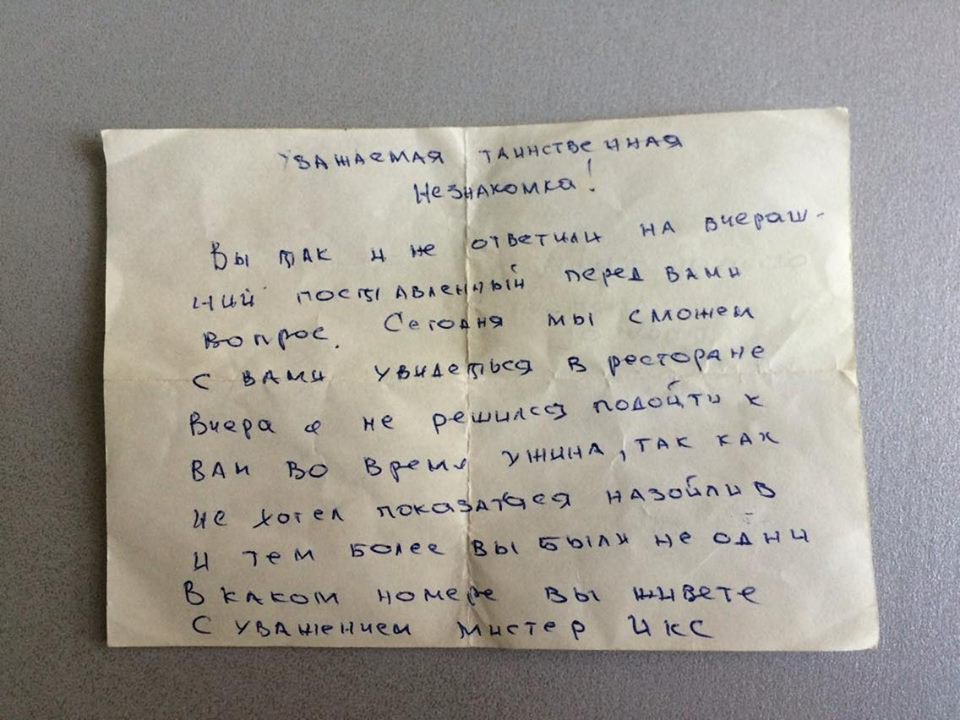 Уважаемая таинственная
Незнакомка!
Вы так и не ответили на вчераш-
ний поставленный перед вами
вопрос. Сегодня мы сможем
с вами увидеться в ресторане
Вчера я не решился подойти к
вам во время ужина, так как
не хотел показаться назойлив
и тем более вы были не одни
В каком номере вы живете
С уважением мистер Икс